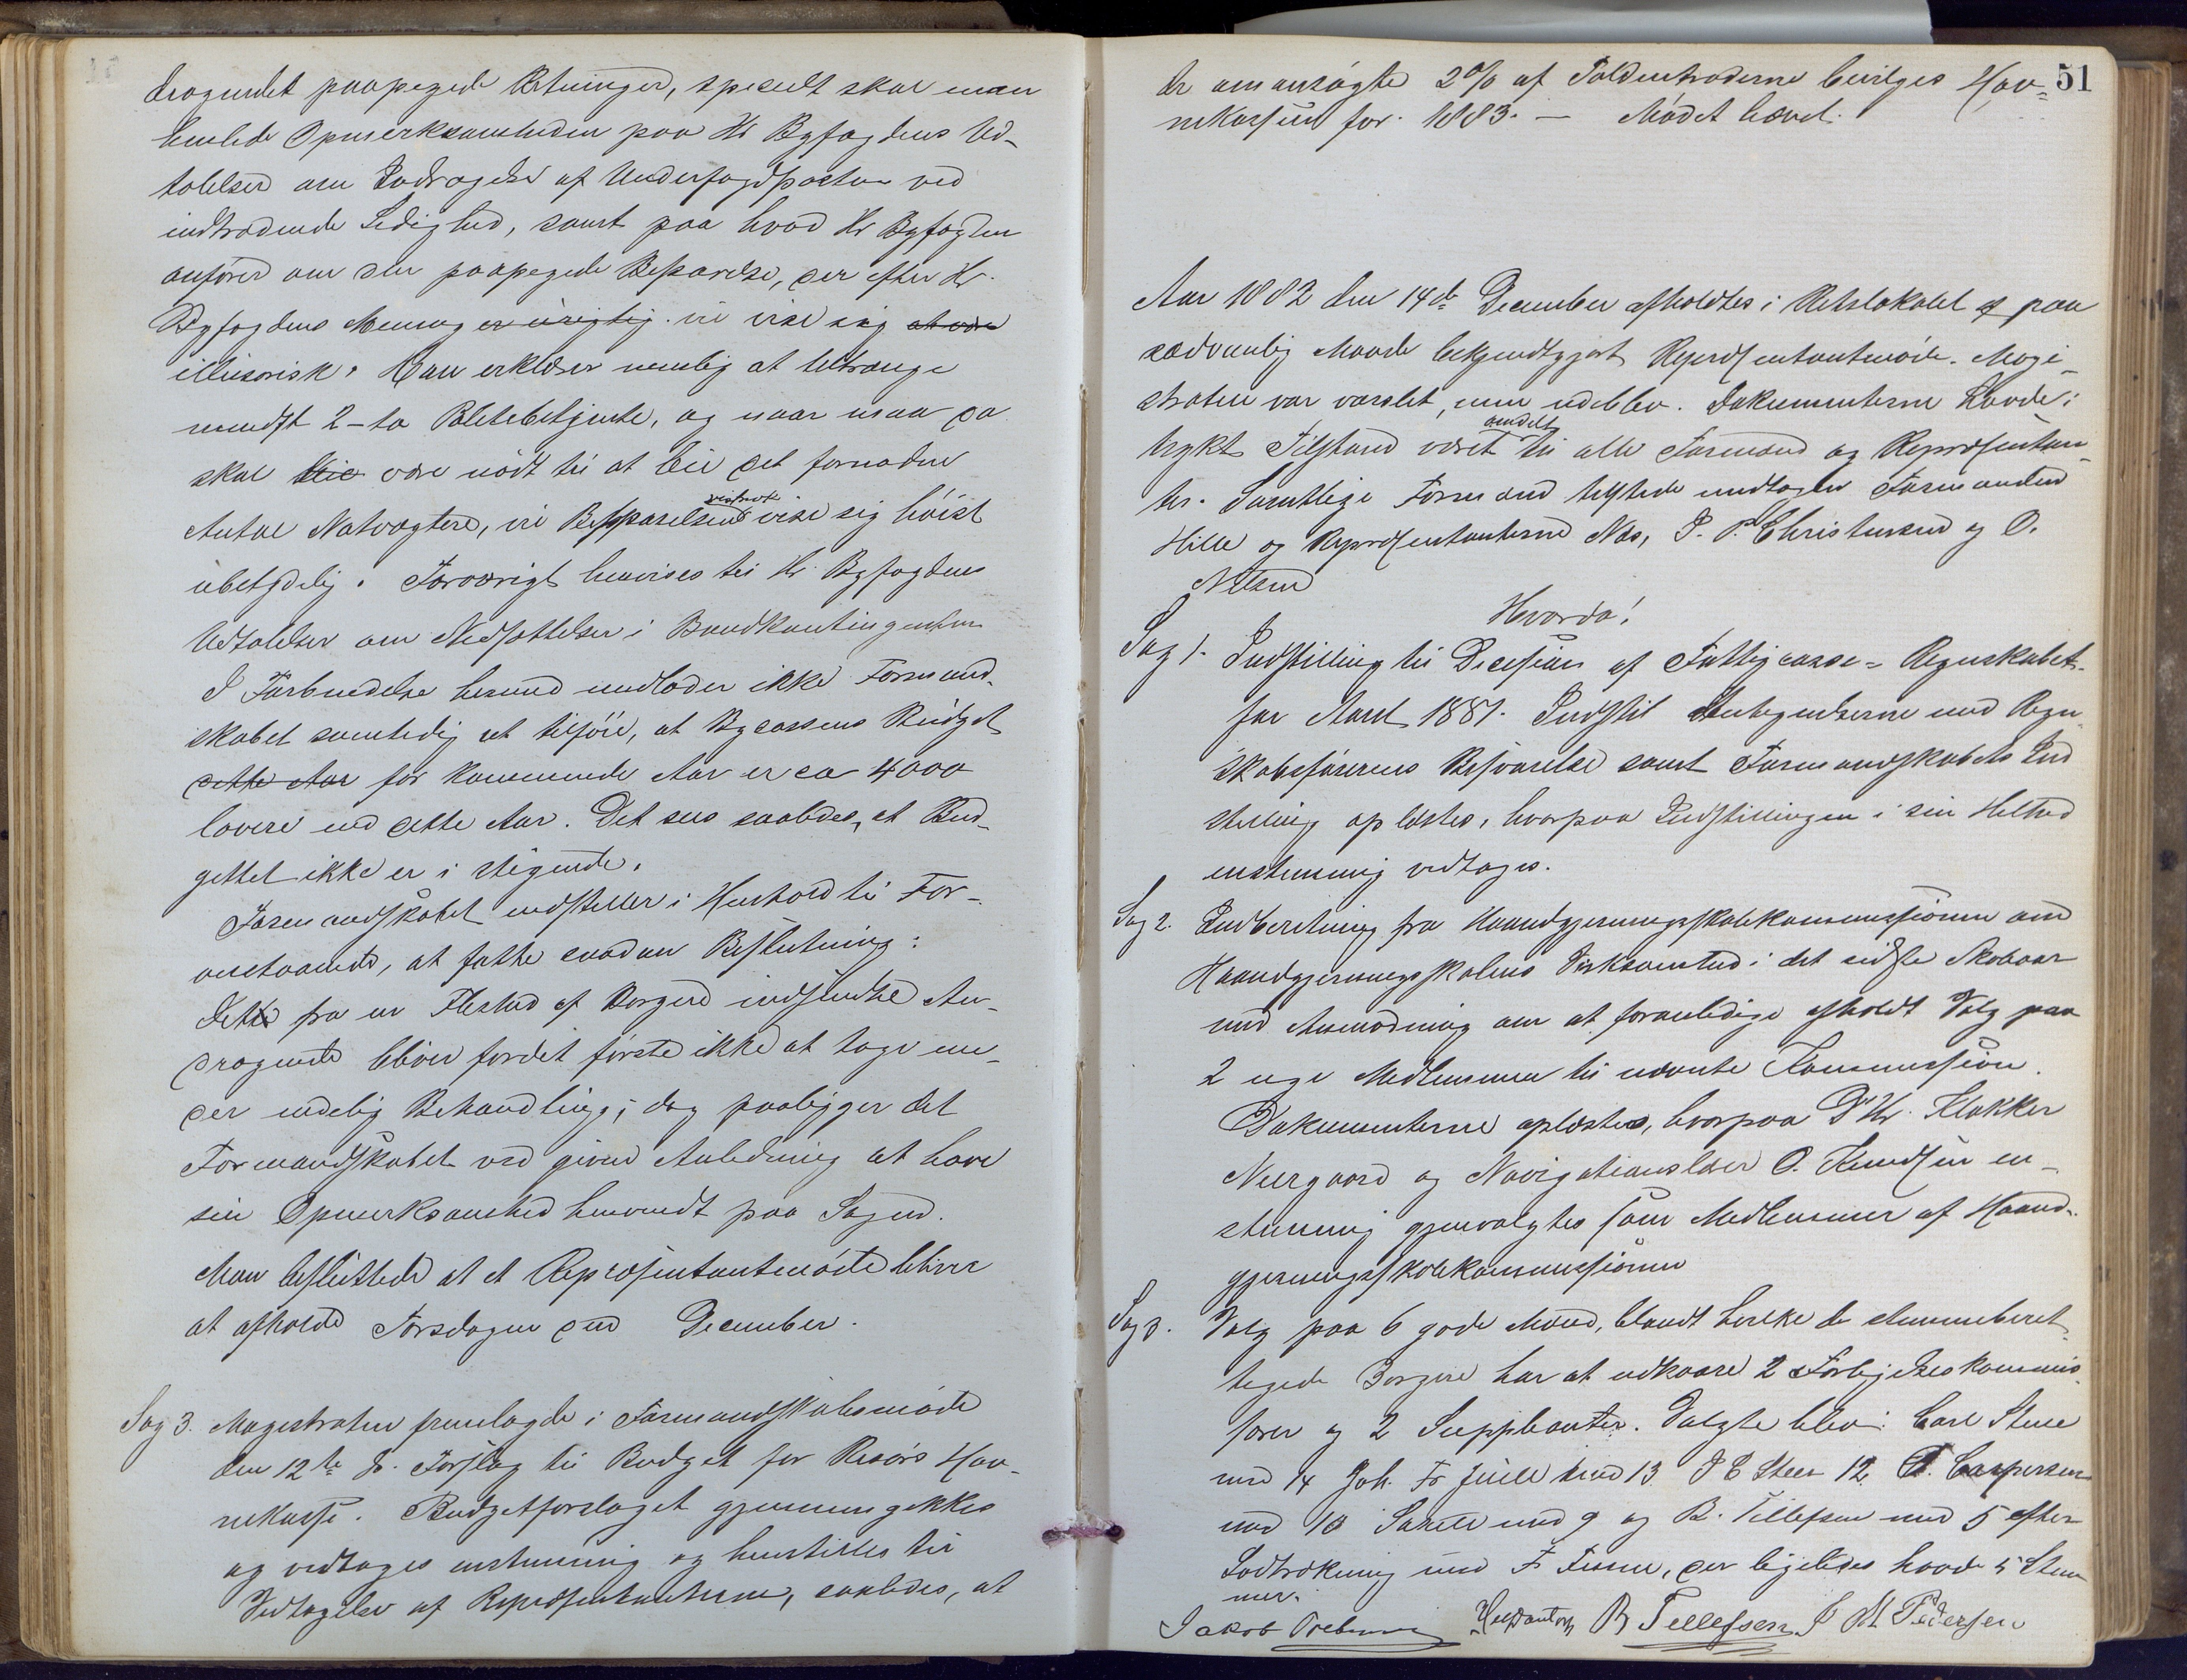 dragendet paapegede Retninger, specielt skal man
henlede Opmerksomheden paa Hr Byfogdens Ud-
talelser om Inddragelse af Underfogdposten ved
indtrædende Ledighed, samt paa hvad Hr Byfogden
anfører om den paapegede Besparelse, der efter Hr.
Byfogdens Mening er urigtig vil vise sig at være
illusorisk. Han erklærer nemlig at tiltrænge
mindst 2-to Politibetjente, og naar man da
skal være nødt til at bie det fornødne
Antal Natvægtere, vil Besparelsen vise sig høist
ubetydelig. Forøvrigt henvises til Hr Byfogdens
Udtalelser om Nedsættelser i Brandkontingenten
I Forbindelse hermed undlader ikke Formand-
skabet samtidig at tilføie, at Bycassens Budget
dette Aar for kommende Aar er ca 4000
lavere end dette Aar. Det sees saaledes, at Bud-
gettet ikke er i stigende.
Formandskabet indstiller i Henhold til For-
anstaaende, at fatte saadan Beslutning:
Dette fra en Flerhed af Borgere indsendte An-
dragende bliver fordet første ikke at tage un-
der endelig Behandling; dog paaligger det
Formandskabet ved given Anledning at have
sin Opmerksomhed henvendt paa Sagen.
Man besluttede at et Repræsentantmøde bliver
at afholde Torsdagen den December.
Sag 3. Magistraten fremlagde i Formandskabsmøde
den 12te ds. Forslag til Budget for Risørs Hav-
nekasse. Budgetforslaget gjennemgikkes
og vedtoges enstemmig og henstilles til
Vedtagelse af Repræsentanterne, saaledes, at
51
de omansøgte 2% af Toldintraderne bevilges Hav-
nekassen for 1883. — Mødet hævet.
Aar 1882 den 14de December afholdtes i Retslokalet paa
sædvanlig Maade bekjendtgjort Repræsentantmøde. Magi-
straten var varslet, men udeblev. Dokumenterne havde i
trykt Tilstand været omdelt til alle Formænd og Repræsentan-
ter. Samtlige Formænd tilstede undtagen Formanden
Hille og Repræsentanterne Næs, J. P. Christensen og O.
Nilsen
Hvorda!
Sag 1. Indstilling til Decision af Fattigcasse-Regnskabet
for Aaret 1881. Indstil Antegnelserne med Regn-
skabsførerens Besvarelse samt Formandskabets Ind
stilling oplæstes, hvorpaa Indstillingen i sin Helhed
enstemmig vedtoges.
Sag 2. Indberetning fra Haandgjerningsskolekommissionen om
Haandgjerningsskolens Virksomhed i det sidste Skoleaar
med Anmodning om at foranledige afholdt Valg paa
2 nye Medlemmer til nævnte Kommission.
Dokumenterne oplæstes, hvorpaa D'Hr. Klokker
Neergaard og Navigationslærer O. Knudsen en-
stemmig gjenvalgtes som Medlemmer af Haand-
gjerningsskolekommissionen
Sag 3. Valg paa 6 gode Mænd, blandt hvilke de stemmeberet-
tigede Borgere har at udkaare 2 Forligelseskommis
særer og 2 Suppleanter. Valgte blev: Carl Stene
med 14 Joh. Fr Juell med 13 J C Steen 12 Caspersen
med 10 med 9 og B. Tellefsen med 5 efter
Lodtrækning med F. Finne, der ligeledes havde 5 Stem
mer.
Jakob Prebensen B Tellefsen J M Pedersen